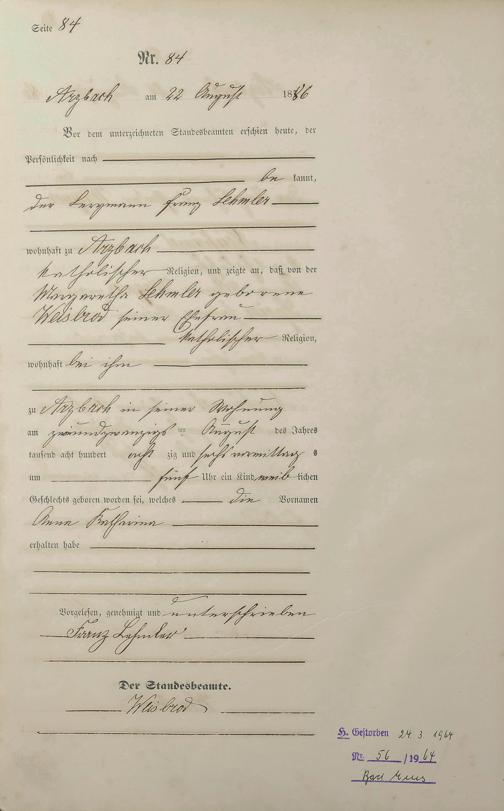 Seite 84
Nr. 84
Arzbach am 22 August 1886
Vor dem unterzeichneten Standesbeamten erschien heute, der
Persönlichkeit nach
be kannt,
der Bergmann Franz Lehmler
wohnhaft zu Arzbach
katholischer Religion, und zeigte an, daß von der
Margaretha Lehmler geborene
Weisbrod seiner Ehefrau
katholischer Religion,
wohnhaft bei ihm
zu Arzbach in seiner Wohnung
am zweiundzwanzigs ten August des Jahres
tausend acht hundert acht zig und sechs vormittag s
um fünf Uhr ein Kind weib lichen
Geschlechts geboren worden sei, welches die Vornamen
Anna Katharina
erhalten habe
Vorgelesen, genehmigt und unterschrieben
Franz Lehmler
Der Standesbeamte.
Weisbrod
Gestorben 24. 3 1964
Nr. 56 /1964
Bad Ems